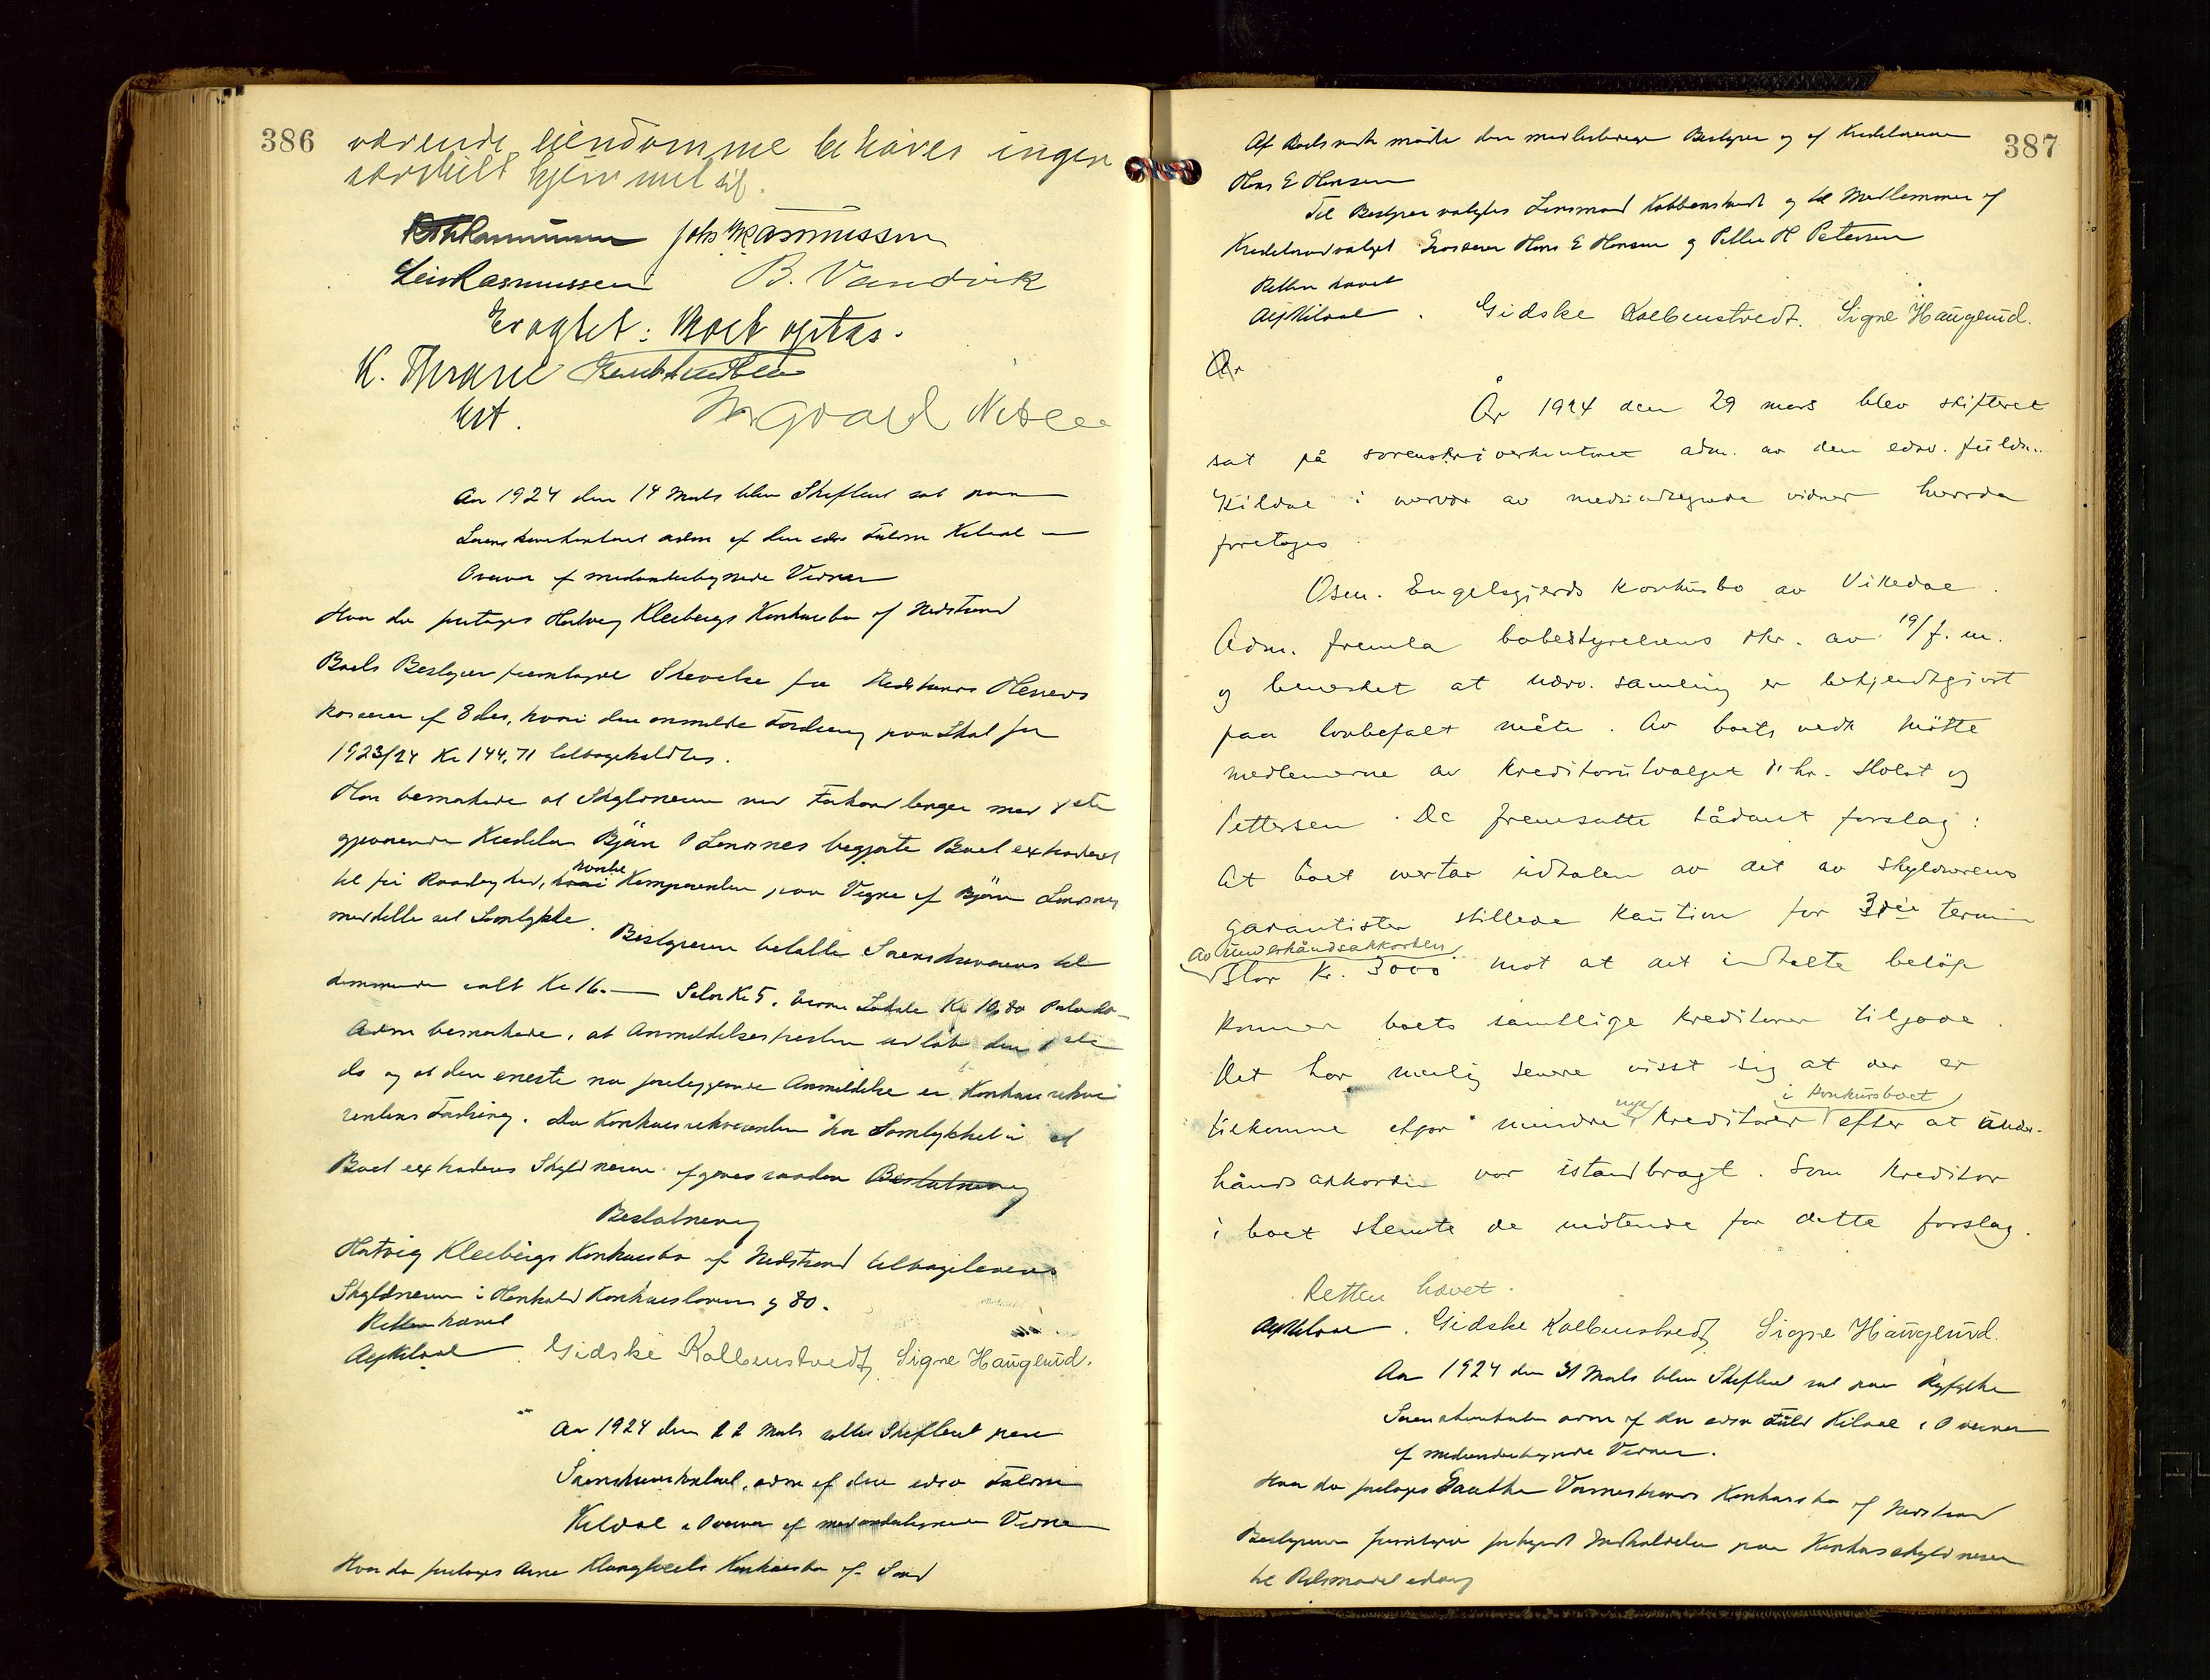 386
værende eiendomme behøves ingen
særskilt hjemmel til.
Joh Rasmussen
Leiv Rasmussen B. Vandvik
Evaglet: Boet opitas.
K. Thrane
Ert. Ingvald Nilsen
Aar 1924 den 14 Marts blev Skifteret sat paa
Sorenskriverkontoret adm af den edsv Fuldm Kildal
Overvær af medundertegnede Vidner
Hvor da foretoges Hartvig Kleibergs Konkursbo af Nedstrand
Boets Bestyrer fremlagde Skrivelse fra Nedstrands Herreds
kasserer af 8 ds, hvori den anmeldte Fordring paa Skat for
1923/24 Kr 144,71 tilbagekaldtes.
Han bemærkede at Skyldneren ved Forhandlinger med sidste
gjenværende Kreditor Björn O Lindanes begjærte Boet extraderet
til fri Raadighed, hvorhos Komparenten paa Vegne af Björn
meddelte sit Samtykke. Bestyreren betalte Sorenskriverens til
kommende ialt Kr 16.— Salær Kr 5. Vidner Lokale Kr 10,80
Adm bemærkede, at Anmeldelsesfristen udløb den
ds og at den eneste nu foreliggende Anmeldelse er Konkursrekvi
rentens Fordring. Da Konkursrekvirenten har Samtykket i at
Boet extraderes Skyldneren afgaves saadan Beslutning
Beslutning
Hartvig Kleibergs Konkursbo af Nedstrand tilbageleveres
Skyldneren i Henhold Konkurslovens § 80.
Retten hævet
Aug Kildal Gidske Kolbenstvedt Signe Hauglund.
Aar 1924 den 22 Marts sattes Skifteret paa
Sorenskriverkontoret, adm af den edsv Fuldm
Kildal i Overvær af medundertegnede Vidner
Hvor da foretoges Arne Klungtveits Konkursbo af Sand
387
Af Boets vedk mødte den midlertidige Bestyrer og af Kreditorerne
Hans E Hansen
Til Bestyrer valgtes Lensmand Kolbenstvedt og til Medlemmer af
Kreditorudvalget Grosserer Hans E Hansen og Peller H Petersen
Retten hævet
Aug Kildal . Gidske Kolbenstvedt. Signe Hauglund.
Aar
År 1924 den 29 mars blev skifteret
sat på sorenskriverkontoret adm. av den edsv. fuldm.
Kildal i nærvær av medundtegnede vidner hvorda
foretoges
Osm. Engelsgjerds konkursbo av Vikedal.
Adm. fremla bobestyrelsens skr. av 19/f. m.
og bemerket at nærv. samling er bekjendtgjort
paa lovbefalt måte. Av boets vedk møtte
medlemerne av kreditorutvalget d'hr. Holst og
Pettersen. De fremsatte sådant forslag:
At boet overtar indtalen av det av skyldnerens
garantister stillede kaution for 3die termin
av underhåndsakkorden
stor kr. 3000 mot at det indtalte beløp
kommer boets samtlige kreditorer tilgode.
Det har nemlig senere vist sig at der er
tilkomne etpar mindre nye kreditorer i konkursboet efter at under-
håndsakkorden var istandbragt. Som kreditor
i boet stemte de møtende for dette forslag.
Retten hævet.
Aug Kildal . Gidske Kolbenstvedt Signe Hauglund.
Aar 1924 den 31 Marts blev Skifteret sat paa Ryfylke
Sorenskriverkontor adm af den edsv Fuldm Kildal i Overvær
af medundertegnede Vidner.
Hvor da foretoges Gauthe Vormestrands Konkursbo af Nedstrand
Bestyreren fremlagde forkyndt Indkaldelse paa Konkursskyldneren
til Retsmødet idag